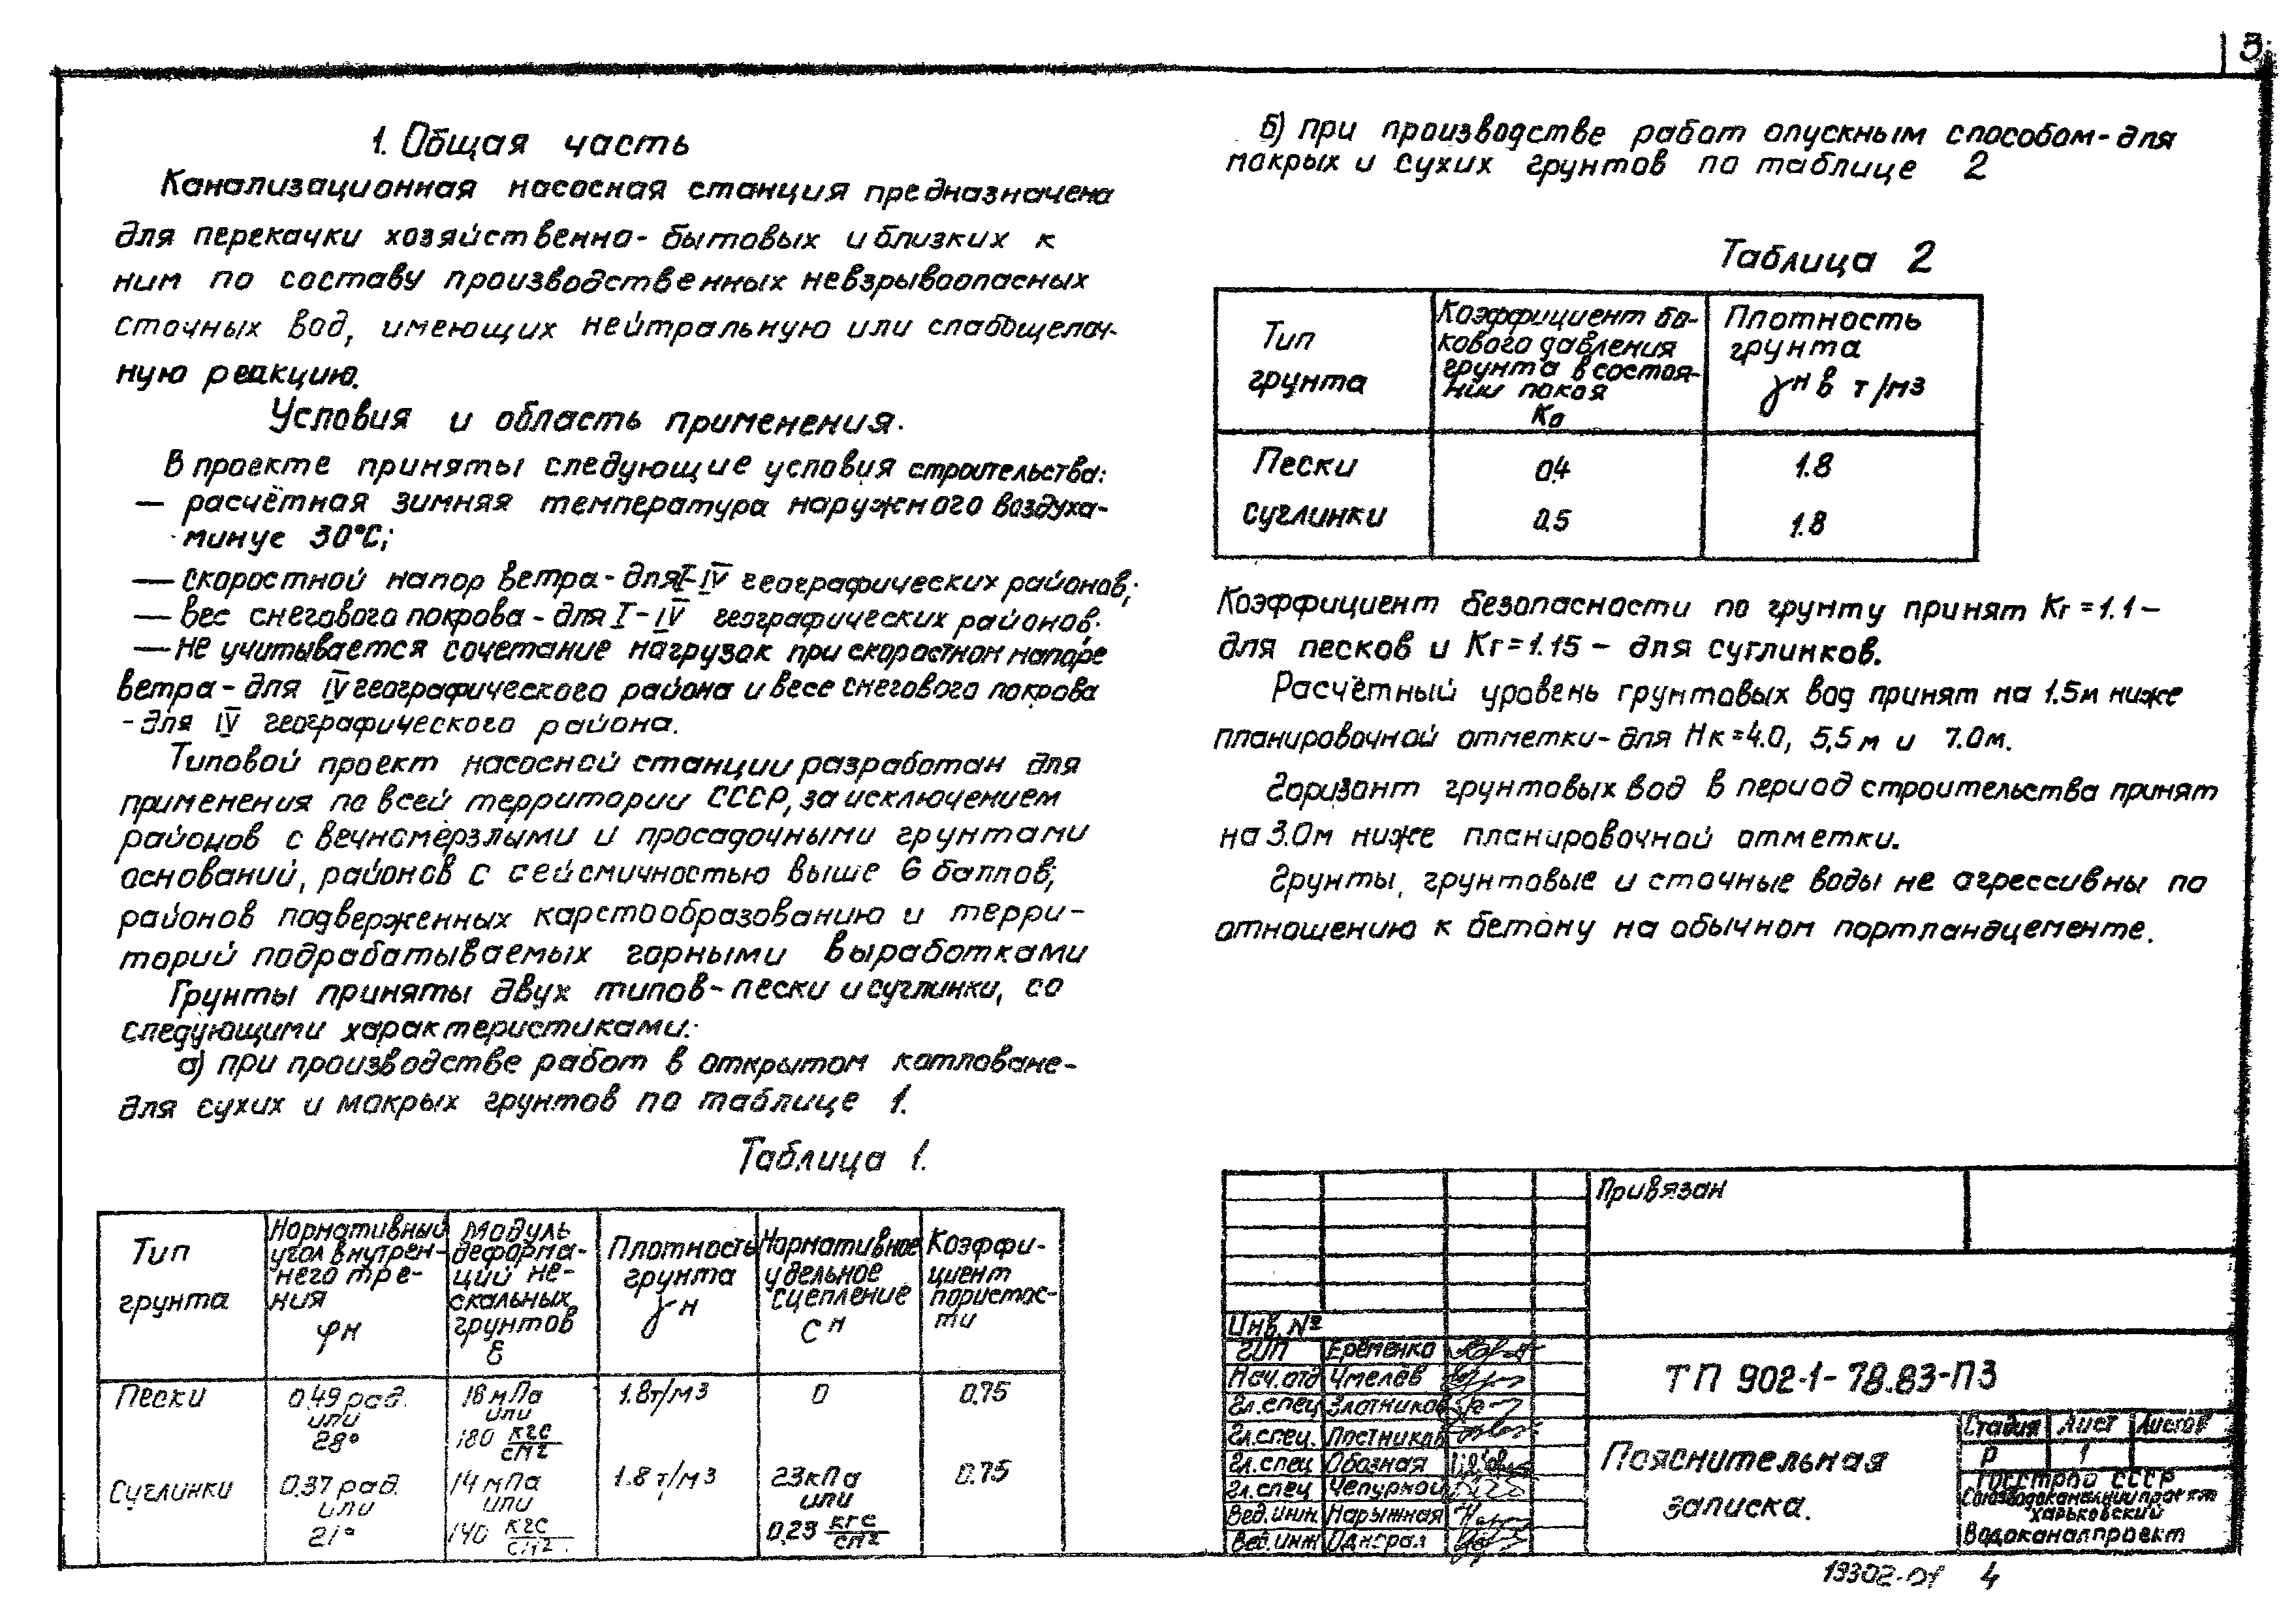 3
1. Общая часть
Канализационная насосная станция предназначена
для перекачки хозяйственно-бытовых и близких к
ним по составу производственных невзрывоопасных
сточных вод, имеющих нейтральную или слабощелоч-
ную реакцию.
Условия и область применения.
В проекте приняты следующие условия строительства:
— расчётная зимняя температура наружного воздуха-
минус 30°С;
— скоростной напор ветра - для I-IV географических районов;
— вес снегового покрова - для I-IV географических районов.
— не учитывается сочетание нагрузок при скоростном напоре
ветра - для IV географического района и весе снегового покрова
- для IV географического района.
Типовой проект насосной станции разработан для
применения по всей территории СССР, за исключением
районов с вечномёрзлыми и просадочными грунтами
оснований, районов с сейсмичностью выше 6 баллов;
районов подверженных карстообразованию и терри-
торий подрабатываемых горными выработками
Грунты приняты двух типов - пески и суглинки, со
следующими характеристиками:
а) при производстве работ в открытом котловане-
для сухих и мокрых грунтов по таблице 1.
Таблица 1.
Тип грунта | Нормативный угол внутрен-него тре-ния φн | Модуль деформа-ций не-скальных грунтов Е | Плотность грунта γн | Нормативное удельное сцепление Сн | Коэффи-циент пористос-ти
Пески | 0.49 рад. или 28° | 18 мПа или 180 кгс/см2 | 1.8т/м3 | 0 | 0.75
Суглинки | 0.37 рад. или 21° | 14 мПа или 140 кгс/см2 | 1.8 т/м3 | 23кПа или 0,23 кгс/см2 | 0.75
б) при производстве работ опускным способом - для
мокрых и сухих грунтов по таблице 2
Таблица 2
Тип грунта | Коэффициент бо-кового давления грунта в состоя-нии покоя Ко | Плотность грунта γн в т/м3
Пески | 0.4 | 1.8
суглинки | 0.5 | 1.8
Коэффициент безопасности по грунту принят Кг = 1.1 —
для песков и Кг = 1.15 — для суглинков.
Расчётный уровень грунтовых вод принят на 1.5м ниже
планировочной отметки - для Нк = 4.0, 5,5 м и 7.0м.
Горизонт грунтовых вод в период строительства принят
на 3.0м ниже планировочной отметки.
Грунты, грунтовые и сточные воды не агрессивны по
отношению к бетону на обычном портландцементе.
Привязан
Инв. №
ГИП Еременко
Нач. отд Чмелёв
Гл. спец Злотников
Гл. спец. Постников
Гл. спец Обозная
Гл. спец Чепурной
Вед. инж. Нарыжная
Вед. инж
ТП 902-1-78.83-ПЗ
Пояснительная
записка.
Стадия Лист Листов
Р 1
Госстрой СССР
Союзводоканалниипроект
Харьковский
Водоканалпроект
19302-01 4